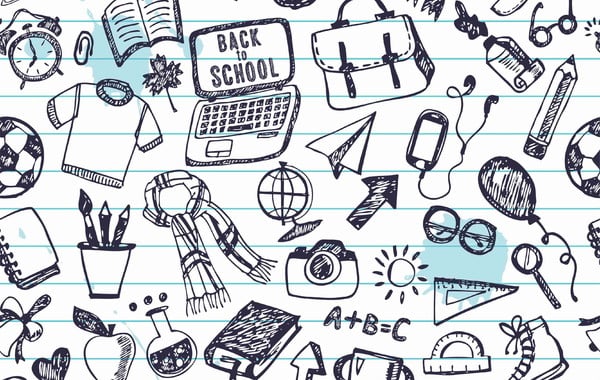 BACK
to
SCHOOL
A+B=C